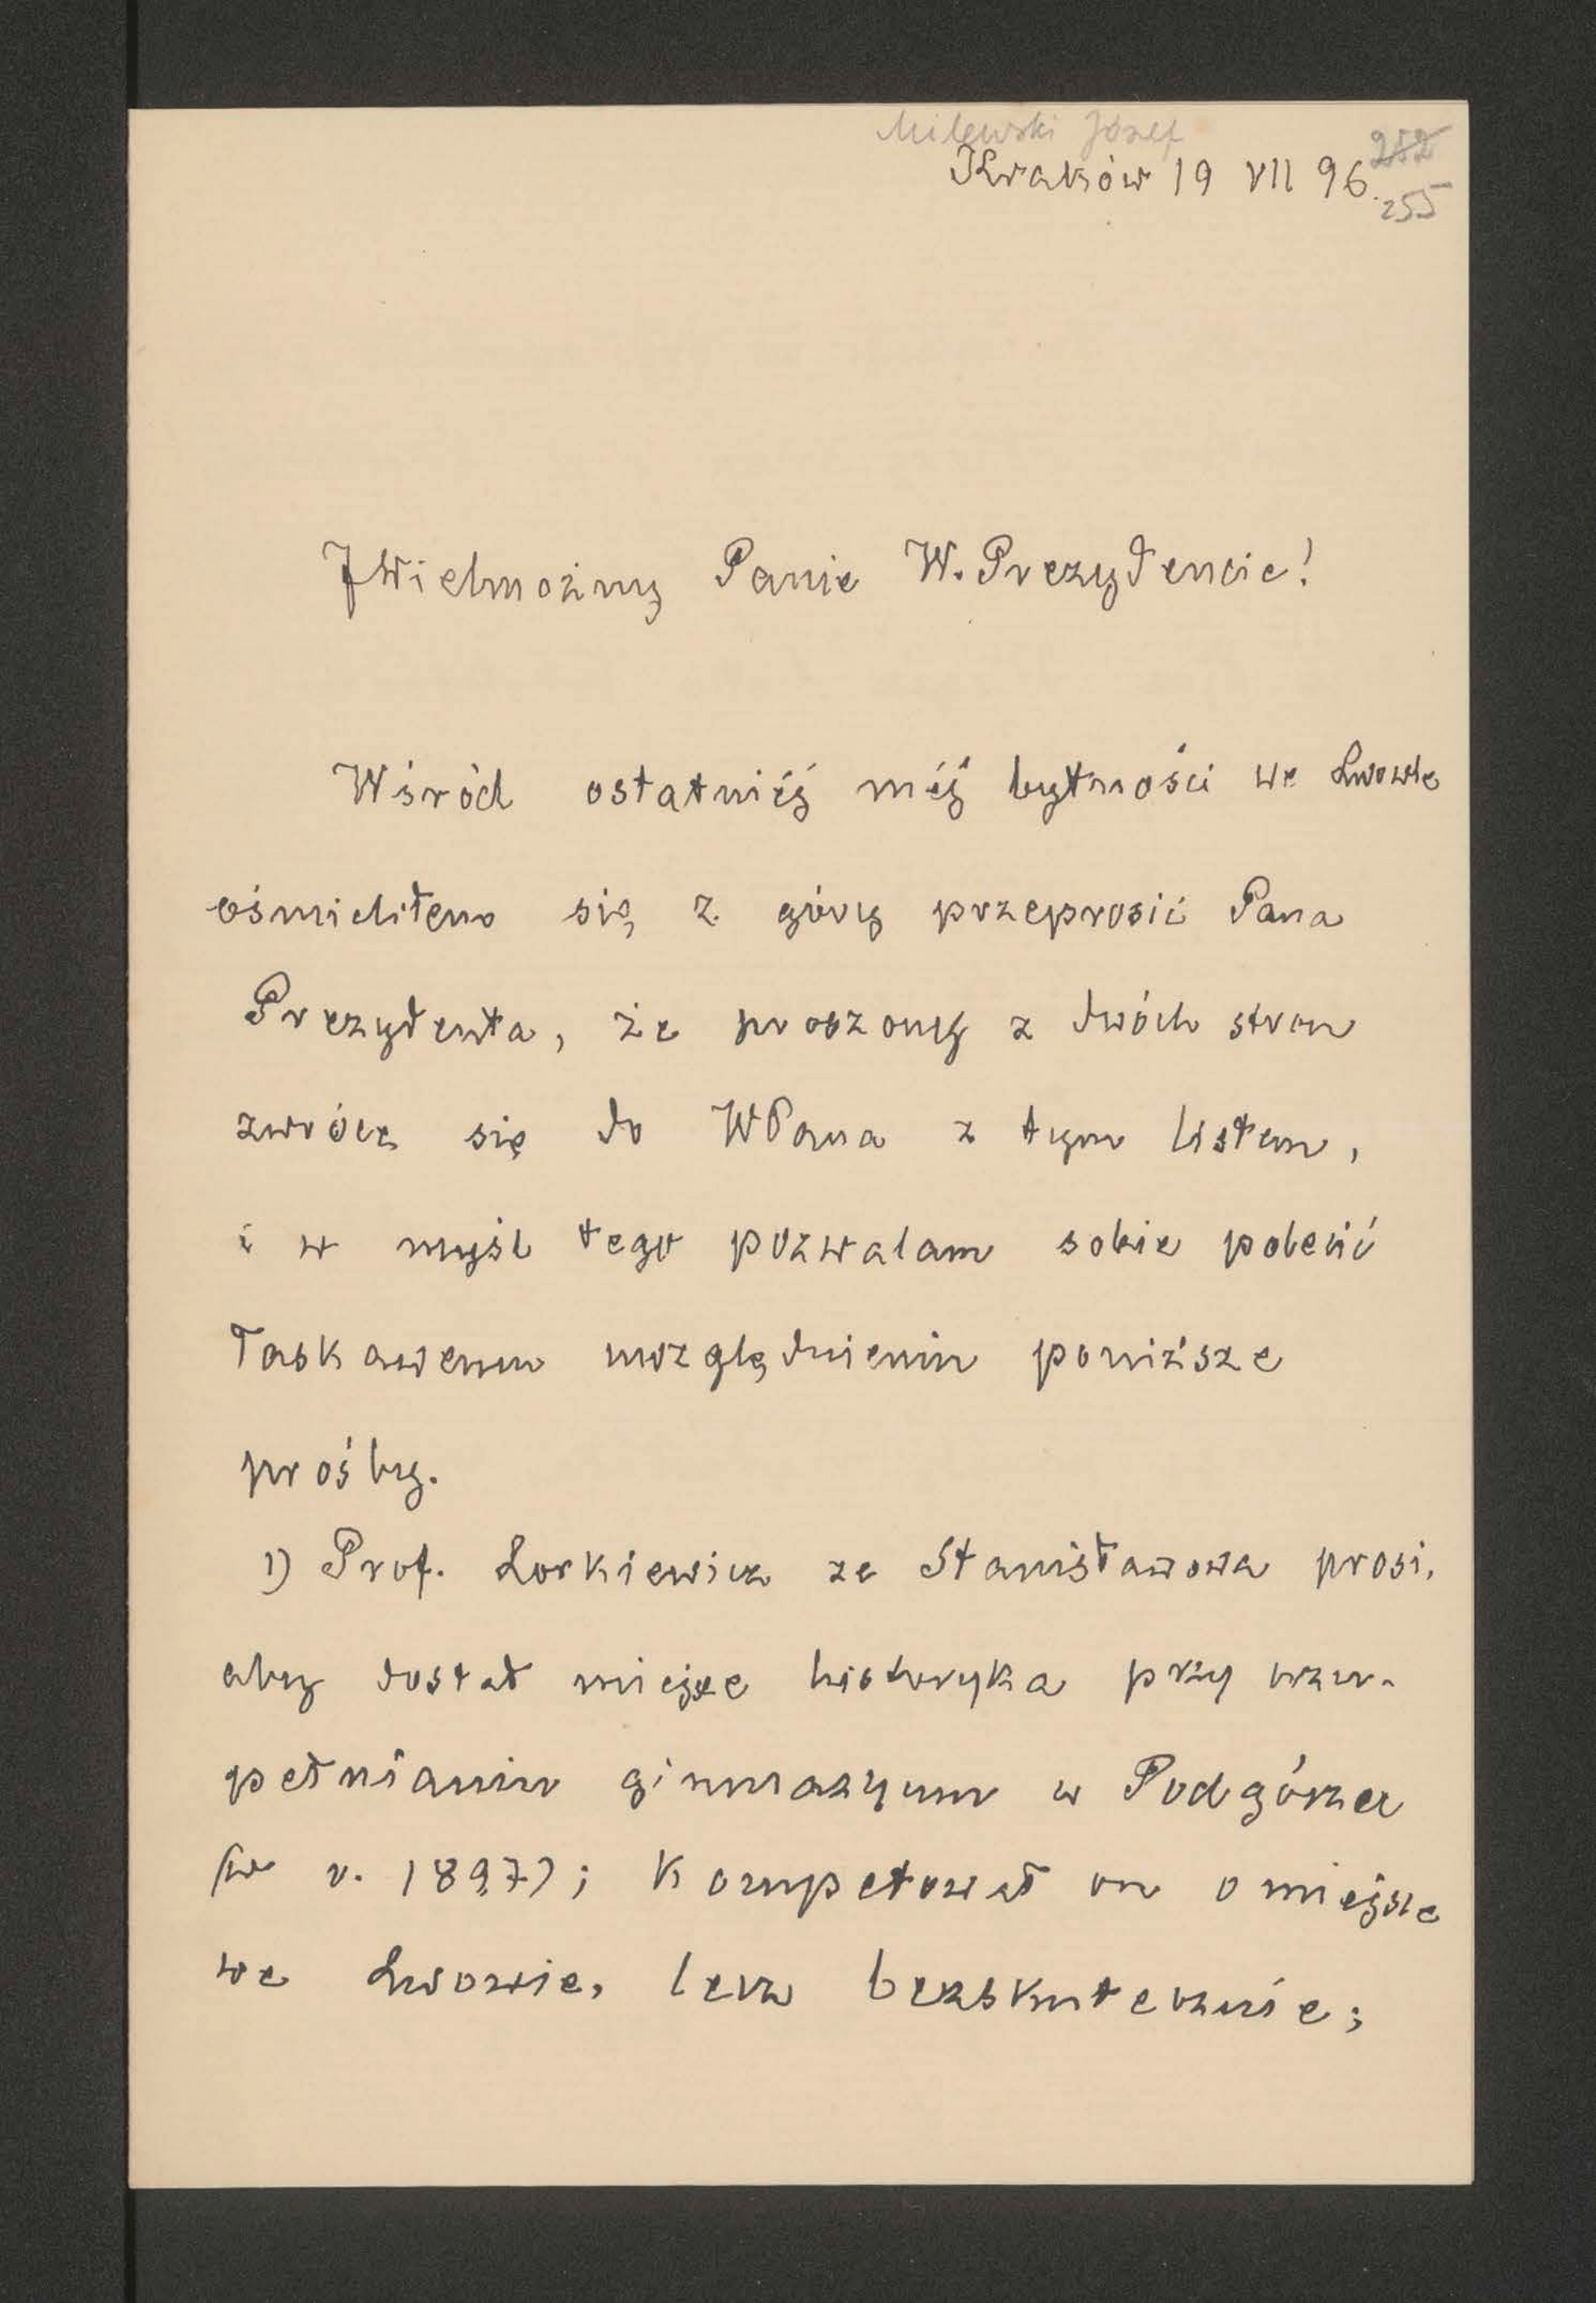 Milewski Józef
Kraków 19 VII 96.
252
255
JWielmożny Panie W. Prezydencie!
Wśród ostatniéj méj bytności we Lwowie
ośmieliłem się z góry przeprosić Pana
Prezydenta, że proszony z dwóch stron
zwrócę się do WPana z tym listem,
i w myśl tego pozwalam sobie polecić
łaskawemu uwzględnieniu poniższe
prośby.
1) Prof. Lorkiewicz ze Stanisławowa prosi,
aby dostał miejsce historyka przy uzu-
pełnianiu gimnazyum w Podgórzu
(w r. 1897); kompetował on o miejsce
we Lwowie, lecz bezskutecznie;